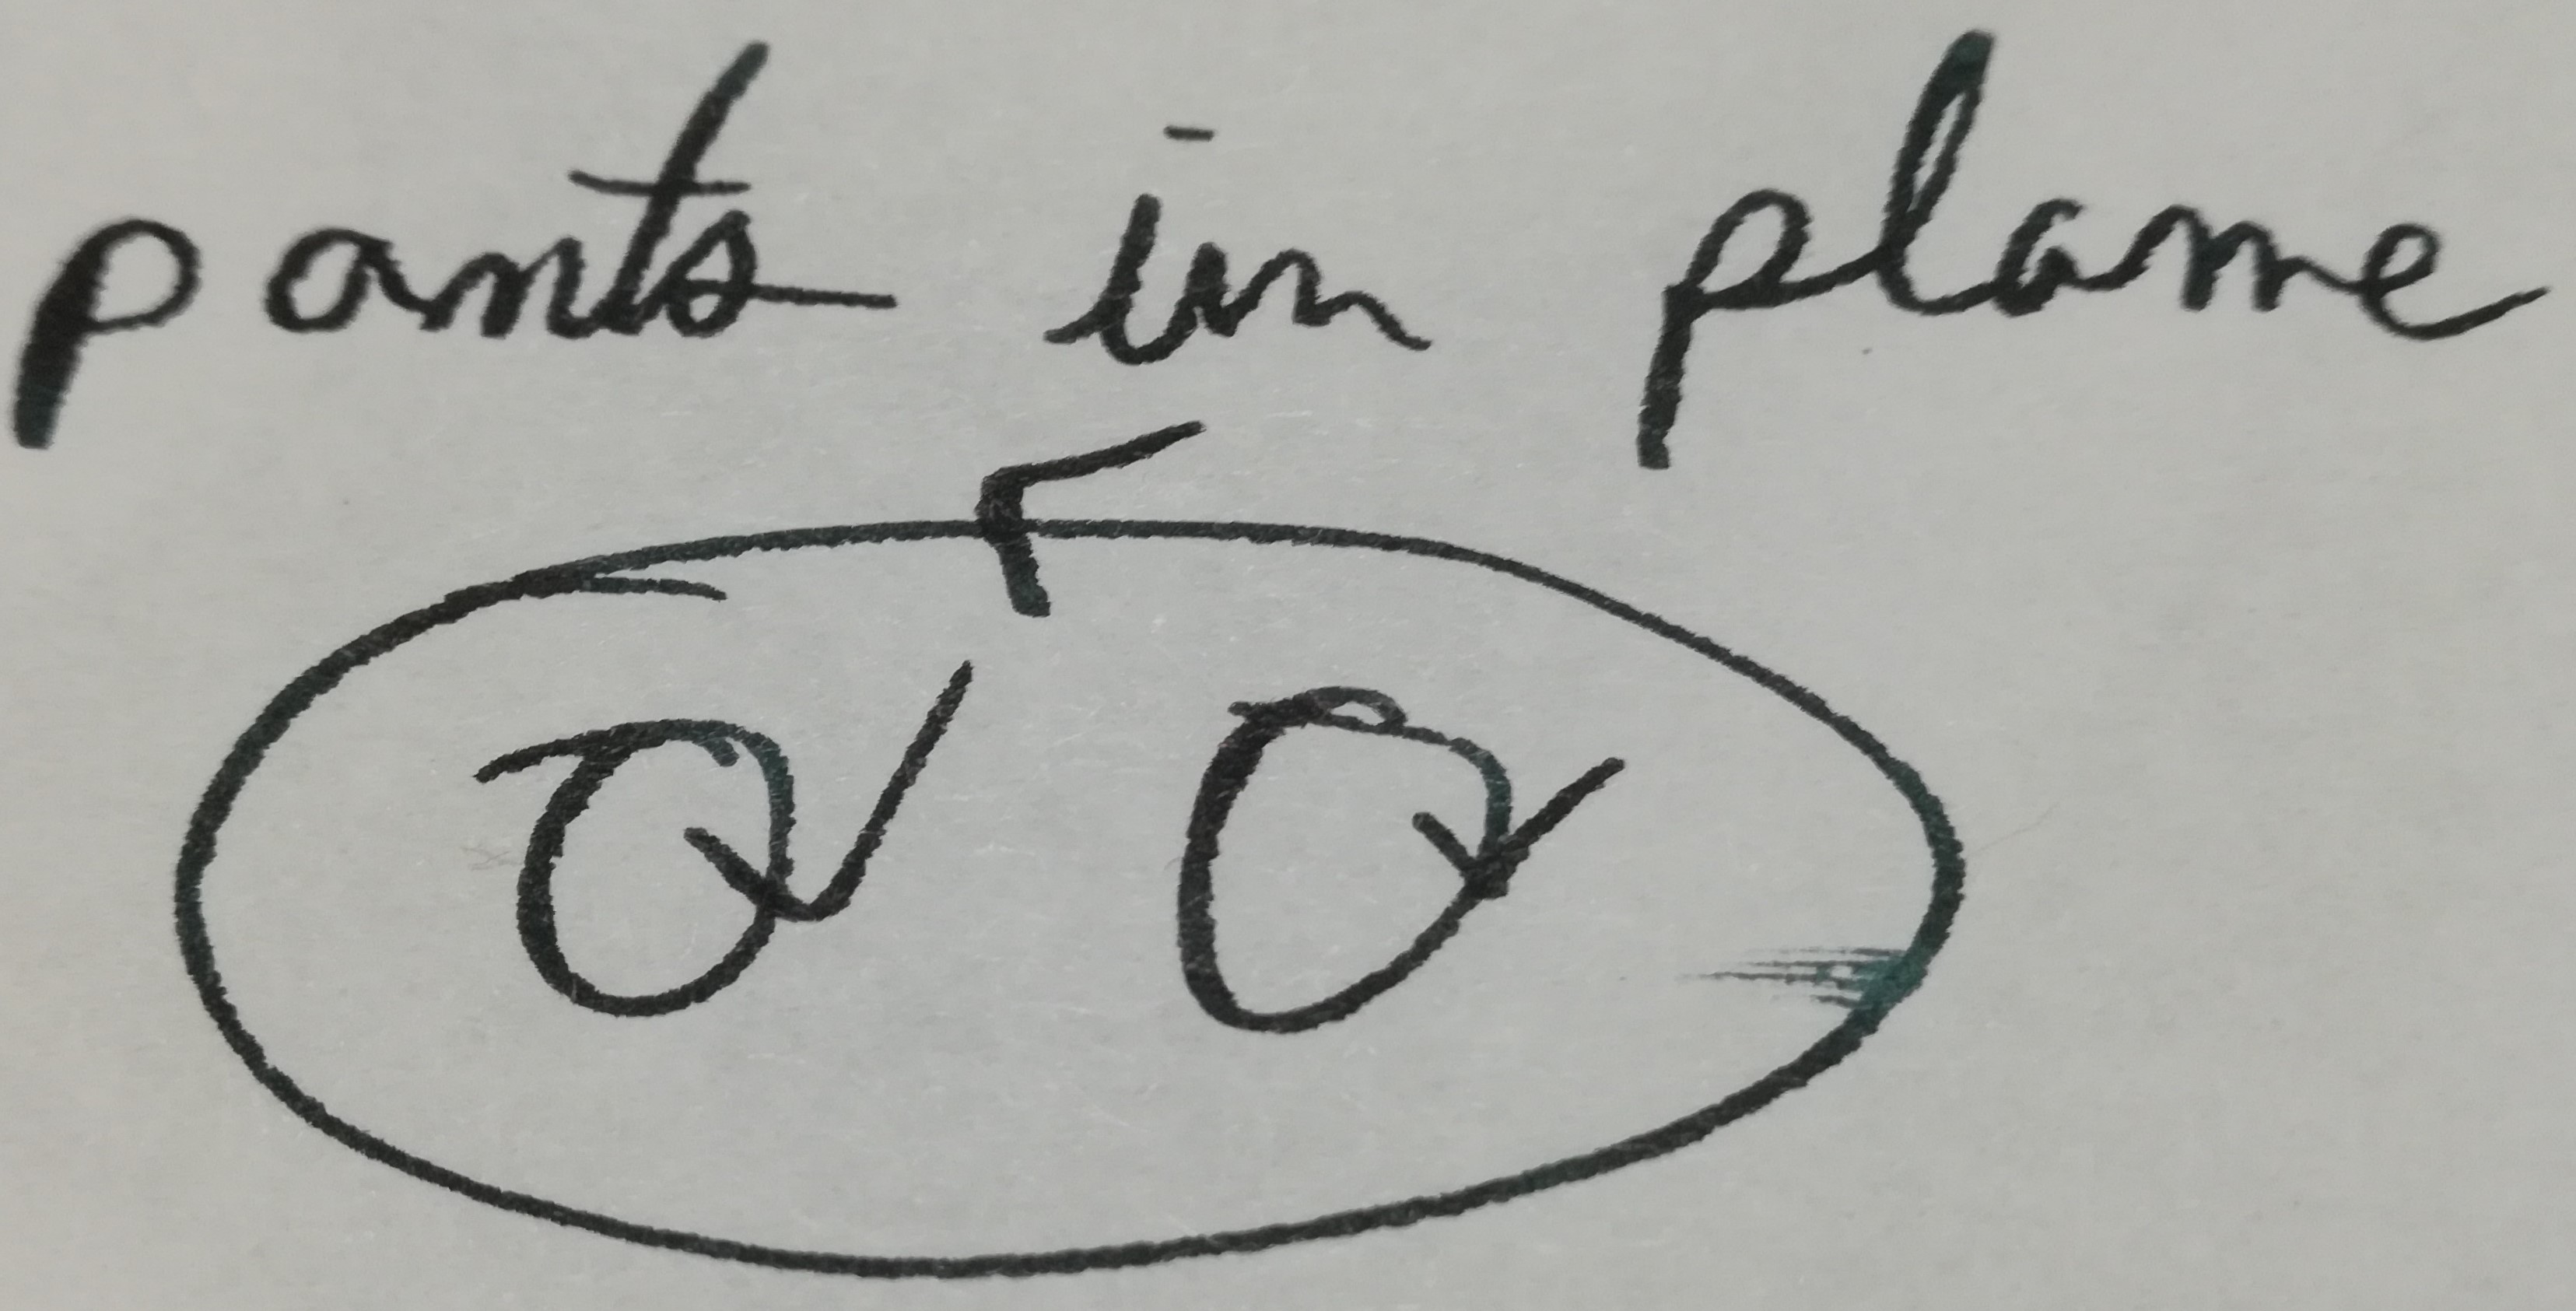 pants in plane